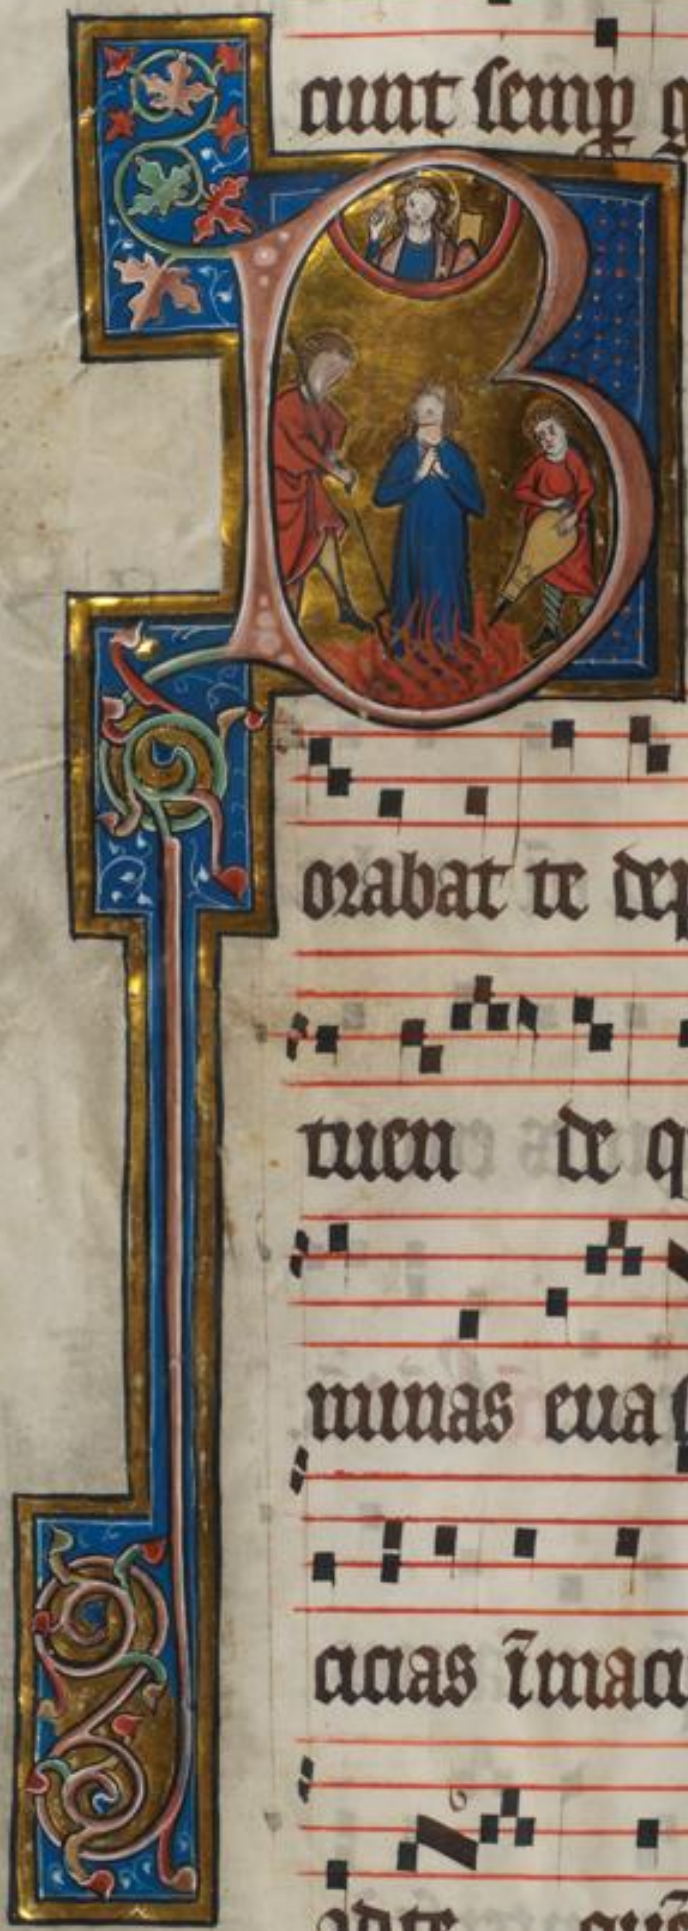 cunt semꝑ g
B
orabat te dep
tuen de q
minas eua
cicias īmacu